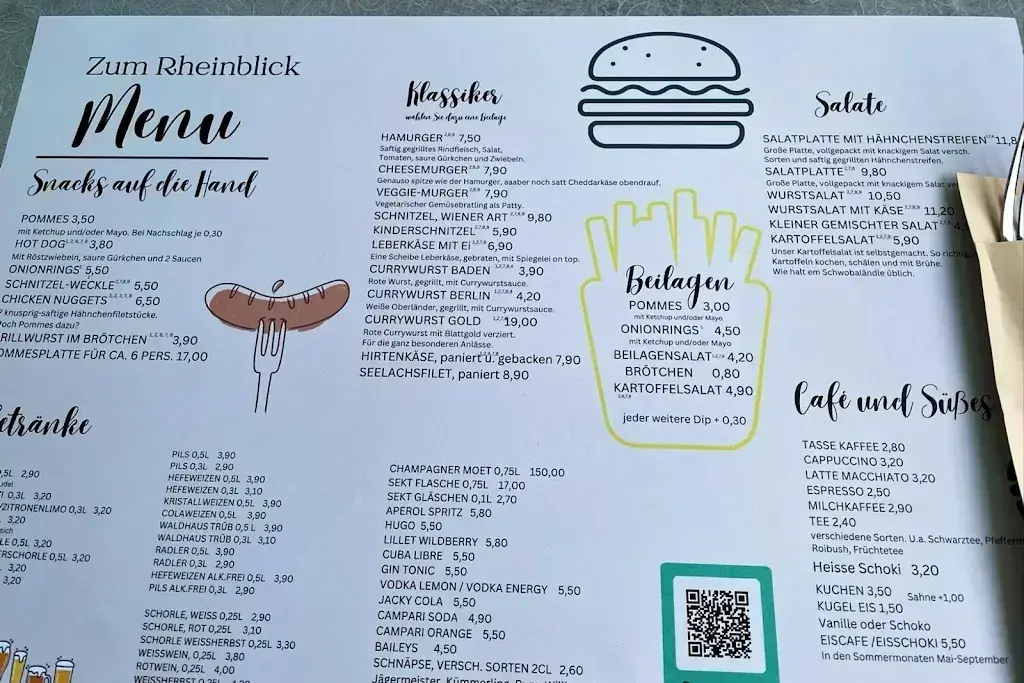 Zum Rheinblick
Menu
Snacks auf die Hand
POMMES 3,50
mit Ketchup und/oder Mayo. Bei Nachschlag je 0,30
HOT DOG 1,2,6,7,8 3,80
Mit Röstzwiebeln, saure Gürkchen und 2 Saucen
ONIONRINGS 1 5,50
SCHNITZEL-WECKLE 2,7,8,9 5,50
CHICKEN NUGGETS 1,2,3,7,8 6,50
knusprig-saftige Hähnchenfiletstücke.
Noch Pommes dazu?
GRILLWURST IM BRÖTCHEN 1,2,6,7,8 3,90
POMMESPLATTE FÜR CA. 6 PERS. 17,00
Klassiker
wählen Sie dazu eine Beilage
HAMURGER 2,8,9 7,50
Saftig gegrilltes Rindfleisch, Salat,
Tomaten, saure Gürkchen und Zwiebeln.
CHEESEMURGER 2,8,9 7,90
Genauso spitze wie der Hamurger, aaaber noch satt Cheddarkäse obendrauf.
VEGGIE-MURGER 2,8,9 7,90
Vegetarischer Gemüsebratling als Patty.
SCHNITZEL, WIENER ART 2,7,8,9 9,80
KINDERSCHNITZEL 2,7,8,9 5,90
LEBERKÄSE MIT Ei 1,2,7,8 6,90
Eine Scheibe Leberkäse, gebraten, mit Spiegelei on top.
CURRYWURST BADEN 1,2,7,8,4 3,90
Rote Wurst, gegrillt, mit Currywurstsauce.
CURRYWURST BERLIN 1,2,7,8,4 4,20
Weiße Oberländer, gegrillt, mit Currywurstsauce.
CURRYWURST GOLD 1,2,7,8,4 19,00
Rote Currywurst mit Blattgold verziert.
Für die ganz besonderen Anlässe.
HIRTENKÄSE, paniert u. gebacken 7,90
SEELACHSFILET, paniert 8,90
Beilagen
POMMES 3,00
mit Ketchup und/oder Mayo
ONIONRINGS 1 4,50
mit Ketchup und/oder Mayo
BEILAGENSALAT 1,2,7,8 4,20
BRÖTCHEN 0,80
KARTOFFELSALAT 4,90
2,8,7,9
jeder weitere Dip + 0,30
Salate
SALATPLATTE MIT HÄHNCHENSTREIFEN 11,8
Große Platte, vollgepackt mit knackigem Salat versch.
Sorten und saftig gegrillten Hähnchenstreifen.
SALATPLATTE 2,7,8 9,80
Große Platte, vollgepackt mit knackigem Salat
WURSTSALAT 2,7,8,9 10,50
WURSTSALAT MIT KÄSE 2,7,8,9 11,20
KLEINER GEMISCHTER SALAT 2,7,8
KARTOFFELSALAT 1,2,7,8 5,90
Unser Kartoffelsalat ist selbstgemacht. So richtig
Kartoffeln kochen, schälen und mit Brühe.
Wie halt em Schwobaländle üblich.
Getränke
,5L 2,90
0,3L 3,20
ZITRONENLIMO 0,3L 3,20
3,20
LE 0,5L 3,20
ERSCHORLE 0,5L 3,20
3,20
3,20
PILS 0,5L 3,90
PILS 0,3L 2,90
HEFEWEIZEN 0,5L 3,90
HEFEWEIZEN 0,3L 3,10
KRISTALLWEIZEN 0,5L 3,90
COLAWEIZEN 0,5L 3,90
WALDHAUS TRÜB 0,5 L 3,90
WALDHAUS TRÜB 0,3L 3,10
RADLER 0,5L 3,90
RADLER 0,3L 2,90
HEFEWEIZEN ALK.FREI 0,5L 3,90
PILS ALK.FREI 0,3L 2,90
SCHORLE, WEISS 0,25L 2,90
SCHORLE, ROT 0,25L 3,10
SCHORLE WEISSHERBST 0,25L 3,30
WEISSWEIN, 0,25L 3,80
ROTWEIN, 0,25L 4,00
WEISSHERBST 0,25L 4,20
CHAMPAGNER MOET 0,75L 150,00
SEKT FLASCHE 0,75L 17,00
SEKT GLÄSCHEN 0,1L 2,70
APEROL SPRITZ 5,80
HUGO 5,50
LILLET WILDBERRY 5,80
CUBA LIBRE 5,50
GIN TONIC 5,50
VODKA LEMON / VODKA ENERGY 5,50
JACKY COLA 5,50
CAMPARI SODA 4,90
CAMPARI ORANGE 5,50
BAILEYS 4,50
SCHNÄPSE, VERSCH. SORTEN 2CL 2,60
Jägermeister, Kümmerling,
Café und Süßes
TASSE KAFFEE 2,80
CAPPUCCINO 3,20
LATTE MACCHIATO 3,20
ESPRESSO 2,50
MILCHKAFFEE 2,90
TEE 2,40
verschiedene Sorten. U.a. Schwarztee, Pfefferm
Roibush, Früchtetee
Heisse Schoki 3,20
KUCHEN 3,50 Sahne +1,00
KUGEL EIS 1,50
Vanille oder Schoko
EISCAFE /EISSCHOKI 5,50
In den Sommermonaten Mai-September